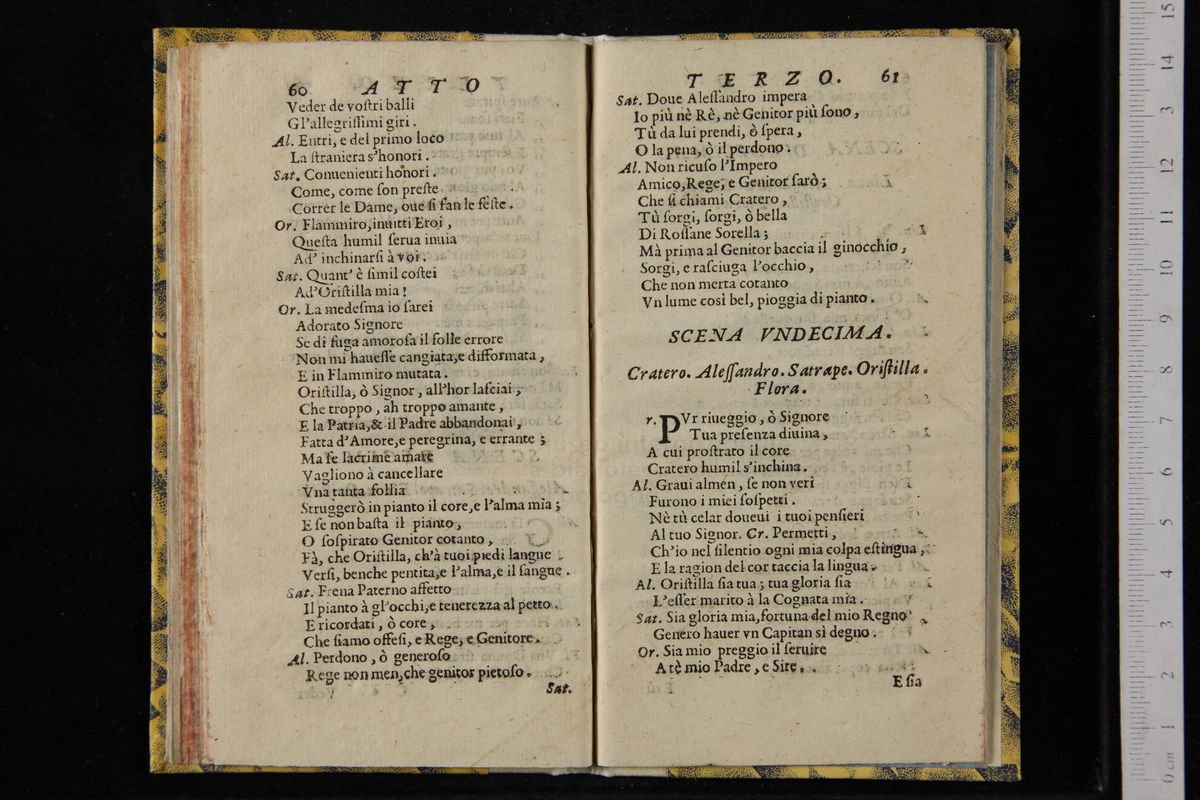 60 ATTO
Veder de voſtri balli
Gl'allegriſſimi giri.
Al. Entri, e del primo loco
La ſtraniera s'honori.
Sat. Conuenienti honori.
Come, come ſon preſte
Correr le Dame, oue ſi fan le feſte.
Or. Flammiro, inuitti Eroi,
Queſta humil ſerua inuia
Ad' inchinarſi à voi.
Sat. Quant' è ſimil coſtei
Ad'Oriſtilla mia!
Or. La medeſma io ſarei
Adorato Signore
Se di fuga amoroſa il folle errore
Non mi haueſſe cangiata, e difformata,
E in Flammiro mutata.
Oriſtilla, ò Signor, all'hor laſciai,
Che troppo, ah troppo amante,
E la Patria, & il Padre abbandonai,
Fatta d'Amore, e peregrina, e errante;
Ma ſe lacrime amare
Vagliono à cancellare
Vna tanta follia
Struggerò in pianto il core, e l'alma mia;
E ſe non baſta il pianto,
O ſoſpirato Genitor cotanto,
Fà, che Oriſtilla, ch'à tuoi piedi langue
Verſi, benche pentita, e l'alma, e il ſangue.
Sat. Frena Paterno affetto
Il pianto à gl'occhi, e tenerezza al petto.
E ricordati, ò core,
Che ſiamo offeſi, e Rege, e Genitore.
Al. Perdono, ò generoſo
Rege non men, che genitor pietoſo.
Sat.
TERZO. 61
Sat. Doue Aleſſandro impera
Io più nè Rè, nè Genitor più ſono,
Tù da lui prendi, ò ſpera,
O la pena, ò il perdono.
Al. Non ricuſo l'Impero
Amico, Rege, e Genitor ſarò;
Che ſi chiami Cratero,
Tù ſorgi, ſorgi, ò bella
Di Roſſane Sorella;
Mà prima al Genitor baccia il ginocchio,
Sorgi, e raſciuga l'occhio,
Che non merta cotanto
Vn lume così bel, pioggia di pianto.
SCENA VNDECIMA.
Cratero. Aleſſandro. Satrape. Oriſtilla.
Flora.
r. PVr riueggio, ò Signore
Tua preſenza diuina,
A cui proſtrato il core
Cratero humil s'inchina.
Al. Graui almen, ſe non veri
Furono i miei ſoſpetti.
Nè tù celar doueui i tuoi penſieri
Al tuo Signor. Cr. Permetti,
Ch'io nel ſilentio ogni mia colpa eſtingua,
E la ragion del cor taccia la lingua.
Al. Oriſtilla ſia tua; tua gloria ſia
L'eſſer marito à la Cognata mia.
Sat. Sia gloria mia, fortuna del mio Regno
Genero hauer vn Capitan sì degno.
Or. Sia mio preggio il ſeruire
A tè mio Padre, e Sire.
E ſia